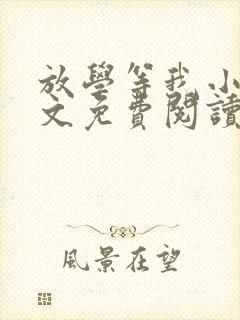 放學等我 小
文免費閱讀
風景在望